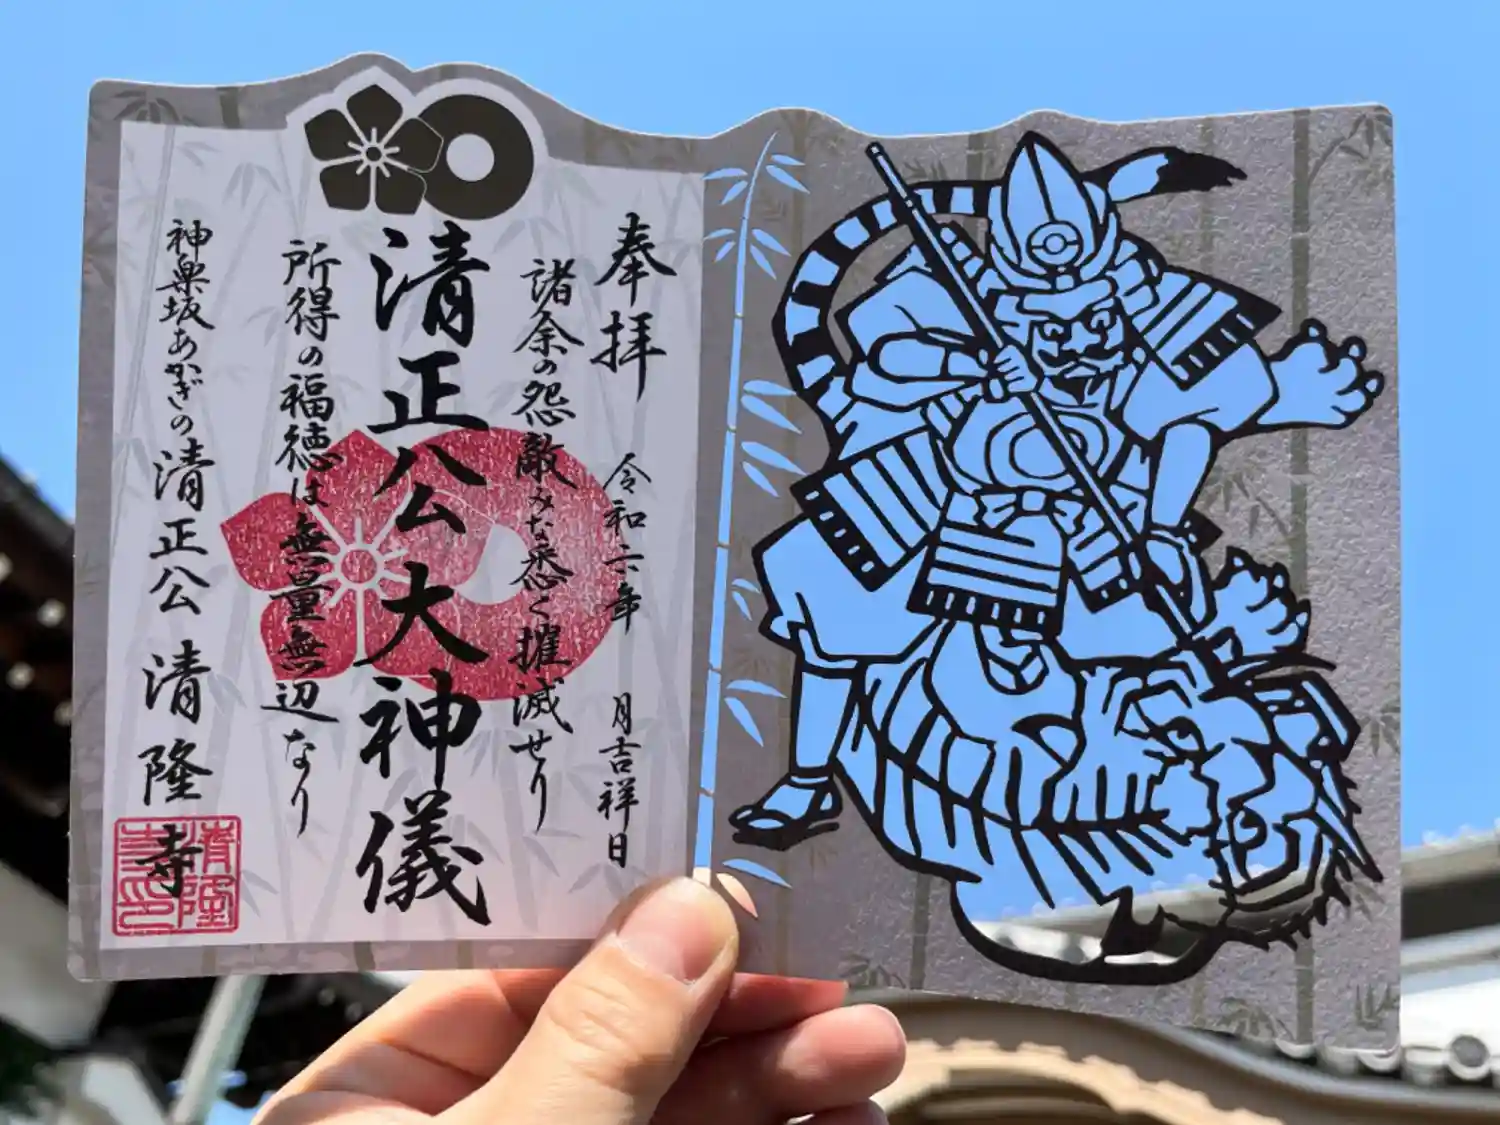 奉拝 令和六年 月吉祥日
諸余の怨敵みな悉く摧滅せり
清正公大神儀
所得の福徳は無量無辺なり
神楽坂あかぎの清正公 清隆寺
清隆寺印